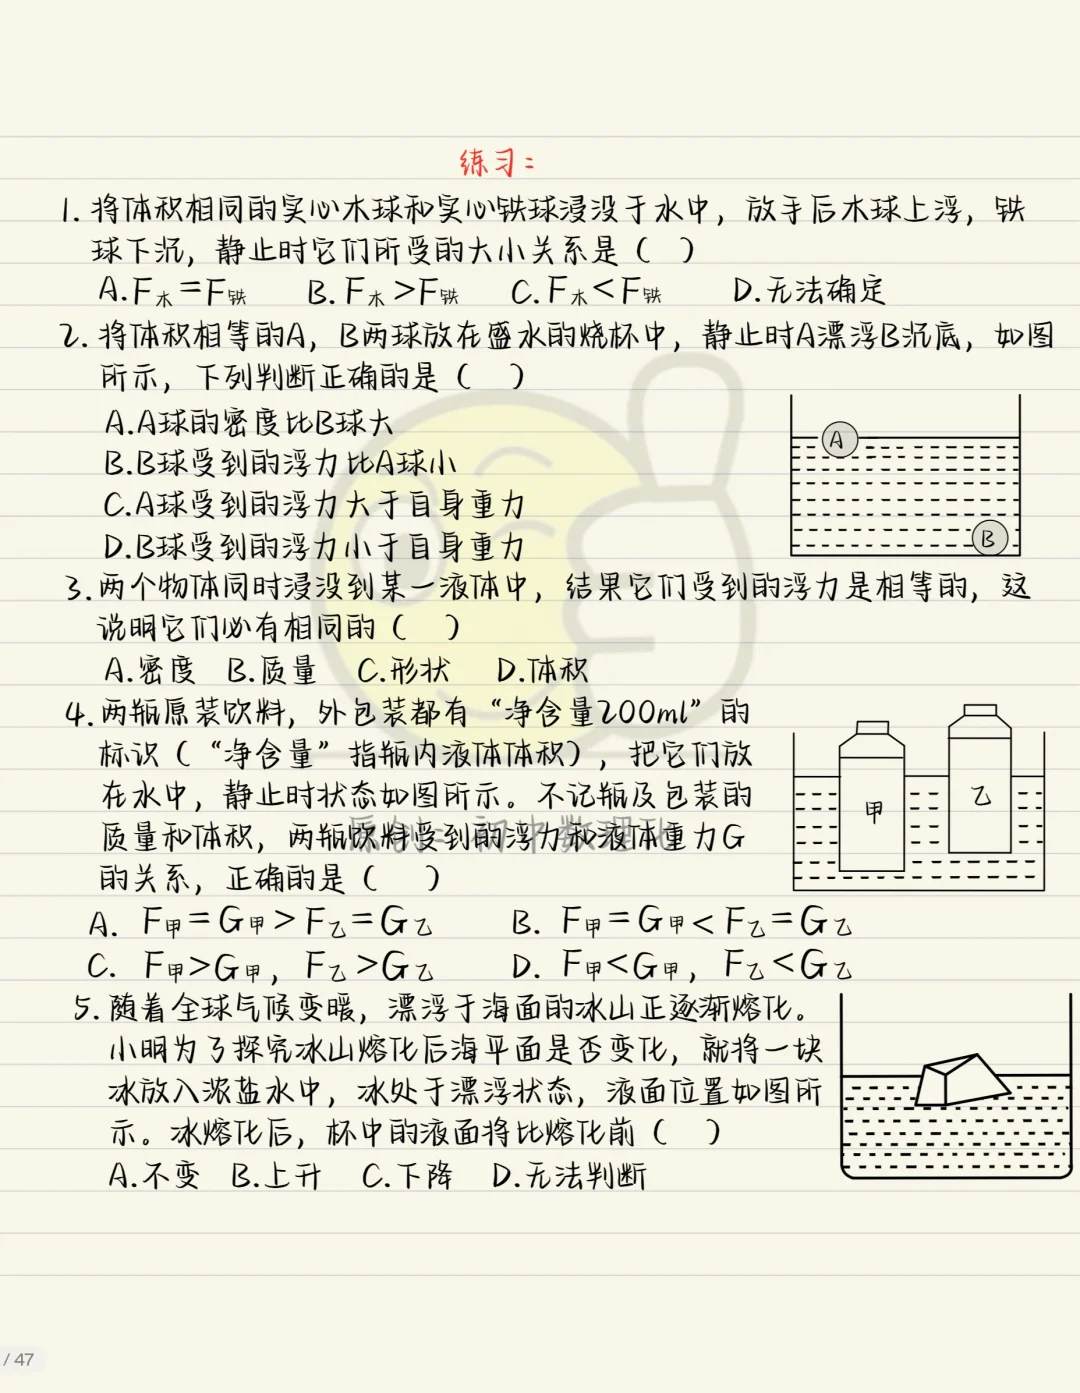 练习：
1. 将体积相同的实心木球和实心铁球浸没于水中，放手后木球上浮，铁
球下沉，静止时它们所受的大小关系是（ ）
A.F木=F铁 B.F木>F铁 C.F木<F铁 D.无法确定
2. 将体积相等的A，B两球放在盛水的烧杯中，静止时A漂浮B沉底，如图
所示，下列判断正确的是（ ）
A.A球的密度比B球大
B.B球受到的浮力比A球小
C.A球受到的浮力大于自身重力
D.B球受到的浮力小于自身重力
A
B
3.两个物体同时浸没到某一液体中，结果它们受到的浮力是相等的，这
说明它们必有相同的（ ）
A.密度 B.质量 C.形状 D.体积
4.两瓶原装饮料，外包装都有“净含量200ml”的
标识（“净含量”指瓶内液体体积），把它们放
在水中，静止时状态如图所示。不记瓶及包装的
质量和体积，两瓶饮料受到的浮力和液体重力G
的关系，正确的是（ ）
甲 乙
原创：初中数理化
A. F甲=G甲>F乙=G乙 B. F甲=G甲<F乙=G乙
C. F甲>G甲，F乙>G乙 D. F甲<G甲，F乙<G乙
5.随着全球气候变暖，漂浮于海面的冰山正逐渐熔化。
小明为了探究冰山熔化后海平面是否变化，就将一块
冰放入浓盐水中，冰处于漂浮状态，液面位置如图所
示。冰熔化后，杯中的液面将比熔化前（ ）
A.不变 B.上升 C.下降 D.无法判断
/ 47